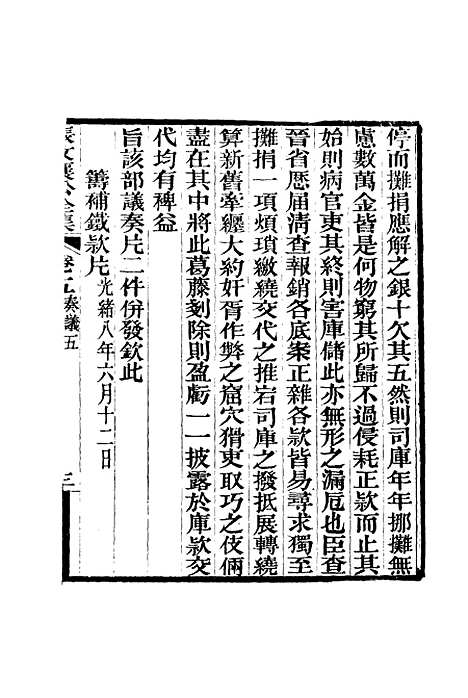 停而攤捐應解之銀十欠其五然則司庫年年挪攤無
慮數萬金皆是何物窮其所歸不過侵耗正款而止其
始則病官吏其終則害庫儲此亦無形之漏卮也臣查
晉省歷届清查報銷各底案正雜各款皆易尋求獨至
攤捐一項煩瑣繳繞交代之推宕司庫之撥抵展轉繞
算新舊牽纏大約奸胥作弊之窟穴猾吏取巧之伎倆
盡在其中將此葛藤剗除則盈虧一一披露於庫款交
代均有裨益
旨該部議奏片二件併發欽此
籌補鐵款片光緒八年六月十二日
張文襄公全集
卷五奏議五
三